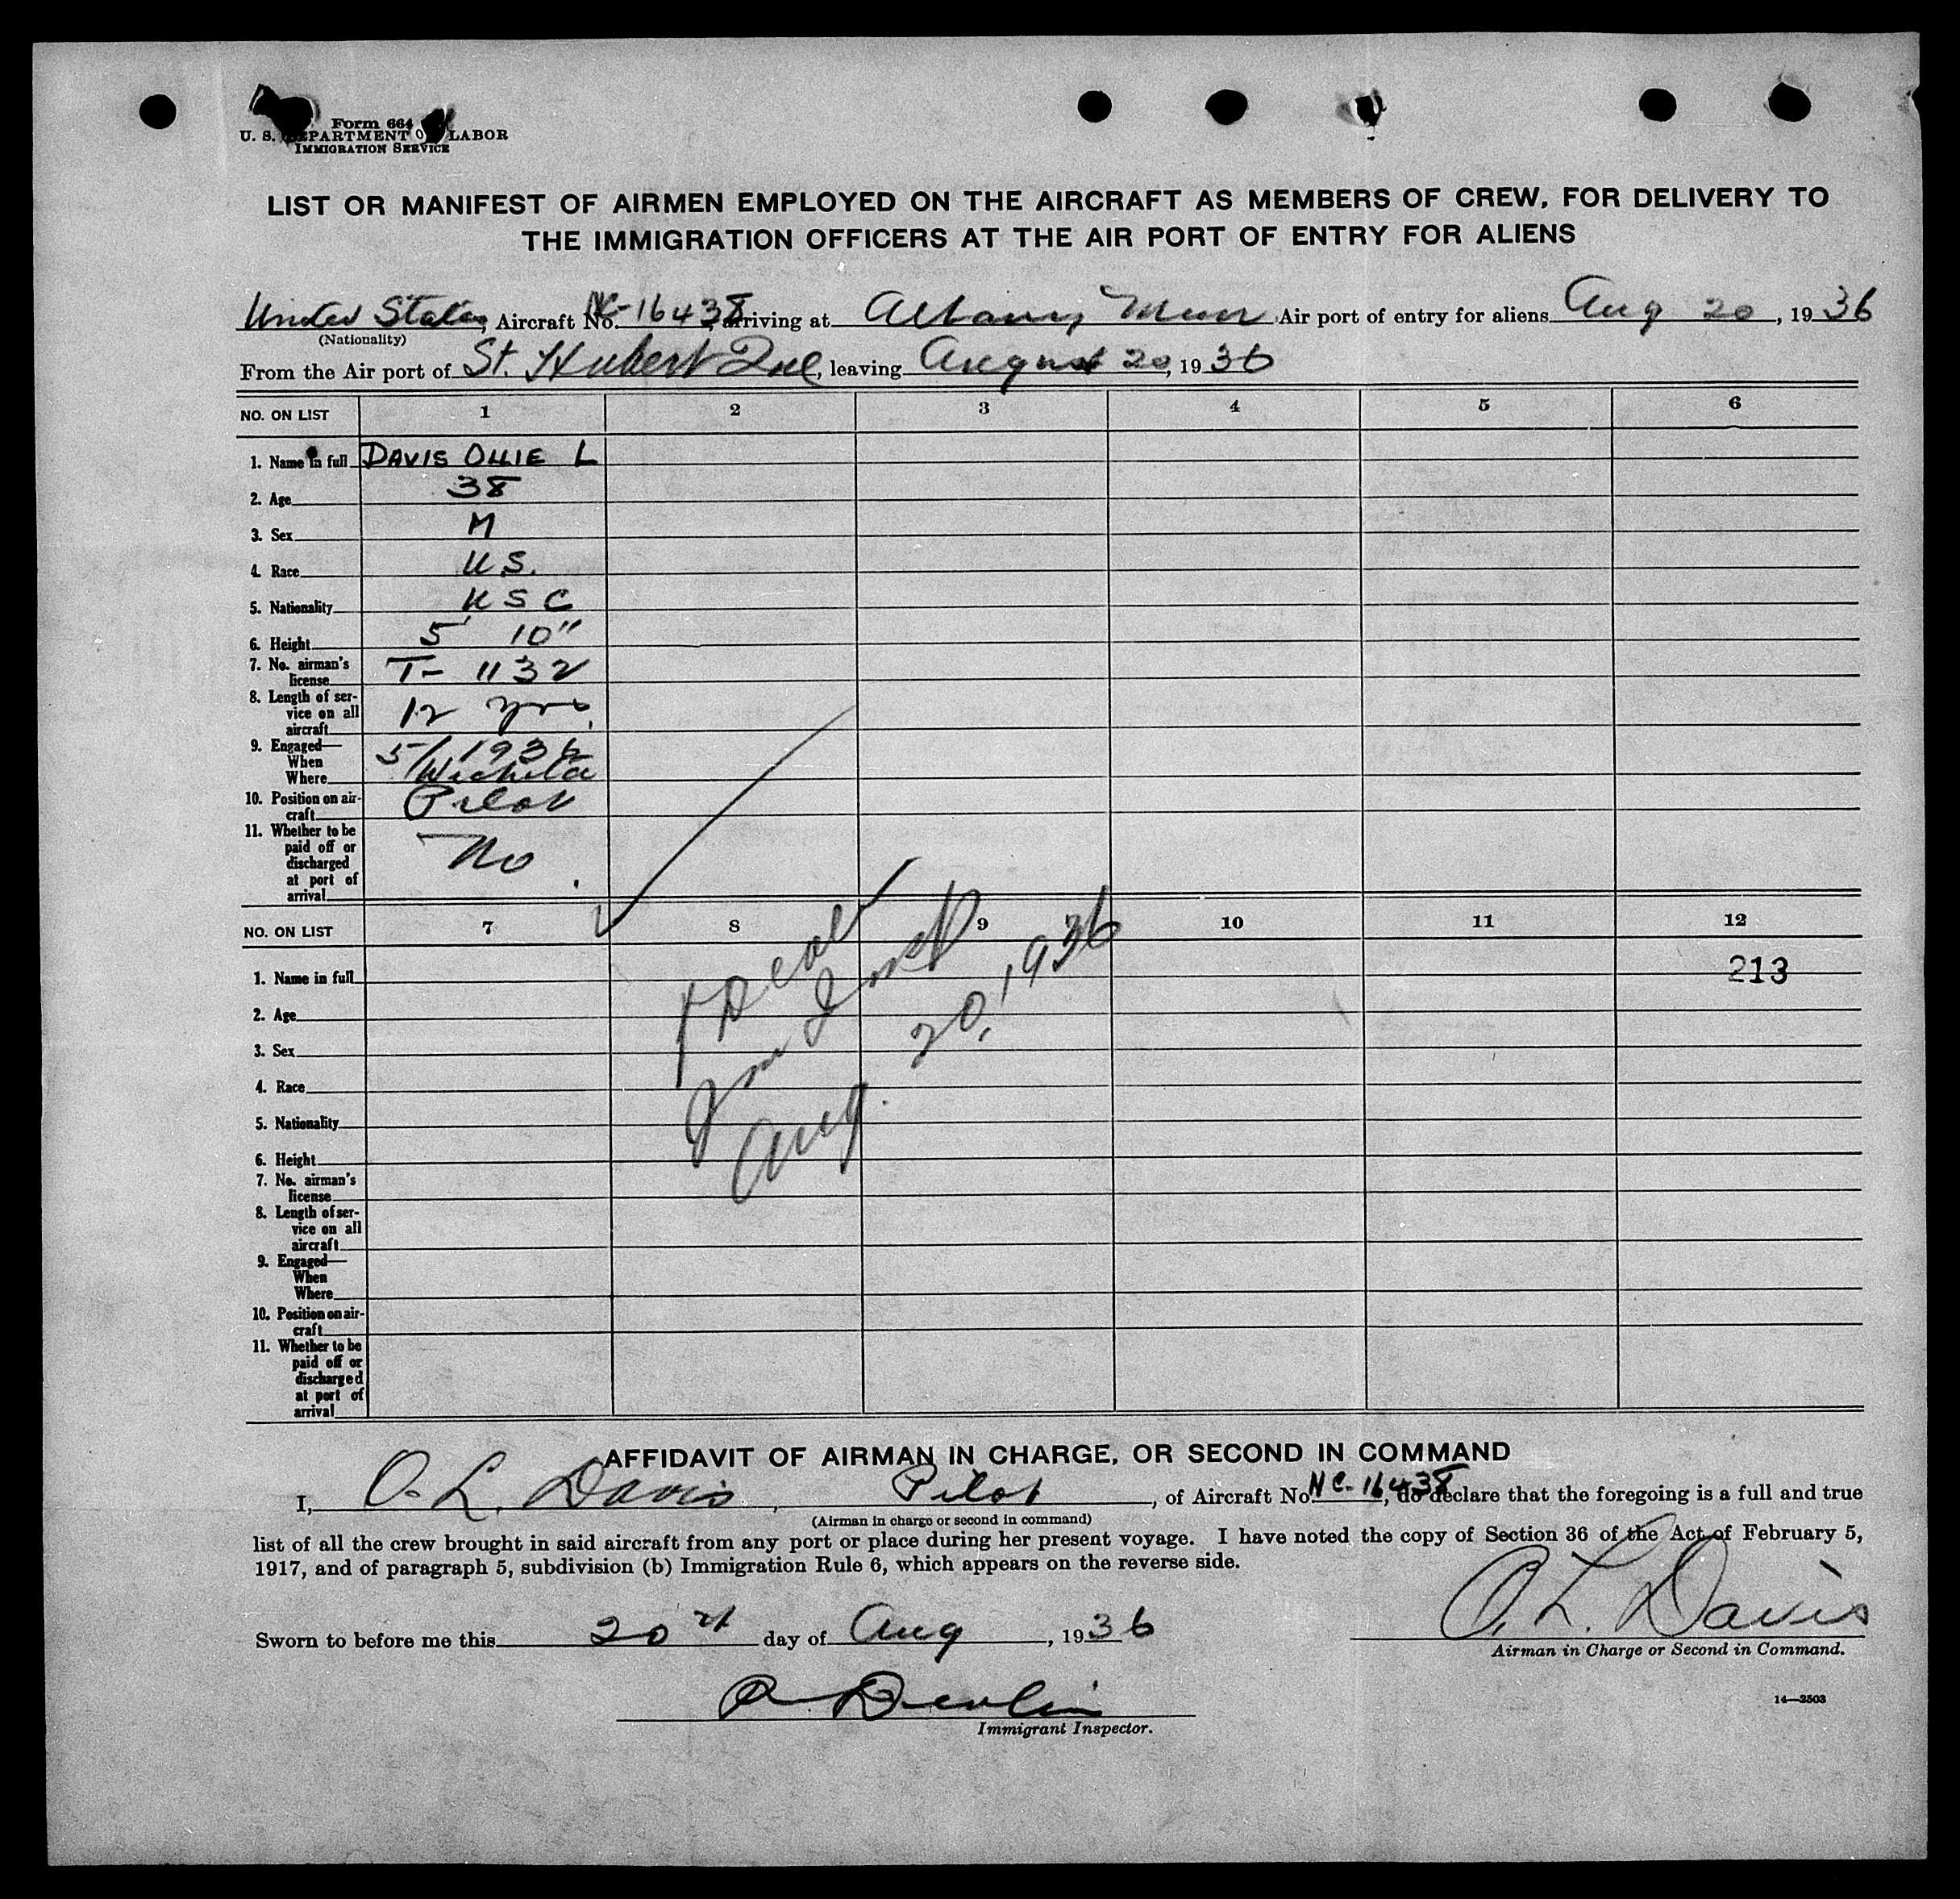 Form 664
U. S. DEPARTMENT OF LABOR
IMMIGRATION SERVICE
LIST OR MANIFEST OF AIRMEN EMPLOYED ON THE AIRCRAFT AS MEMBERS OF CREW, FOR DELIVERY TO
THE IMMIGRATION OFFICERS AT THE AIR PORT OF ENTRY FOR ALIENS
United States, Aircraft No. NC-16438, arriving at Albany Mun Air port of entry for aliens Aug 20, 1936
(Nationality)
From the Air port of St. Hubert Que, leaving August 20, 1936
NO. ON LIST 1 2 3 4 5 6
1. Name in full DAVIS OLLIE L
2. Age 38
3. Sex M
4. Race U.S.
5. Nationality U S C
6. Height 5' 10"
7. No. airman's
license T- 1132
8. Length of ser-
vice on all
aircraft 12 yrs.
9. Engaged—
When 5/1936
Where Wichita
10. Position on air-
craft Pilot
11. Whether to be
paid off or
discharged
at port of
arrival No
NO. ON LIST 7 8 9 10 11 12
1. Name in full 213
2. Age
3. Sex
4. Race
5. Nationality
6. Height
7. No. airman's
license
8. Length of ser-
vice on all
aircraft
9. Engaged—
When
Where
10. Position on air-
craft
11. Whether to be
paid off or
discharged
at port of
arrival
Imm Insp
Aug. 20, 1936
AFFIDAVIT OF AIRMAN IN CHARGE, OR SECOND IN COMMAND
I, O. L. Davis, Pilot, of Aircraft No. NC-16438, do declare that the foregoing is a full and true
(Airman in charge or second in command)
list of all the crew brought in said aircraft from any port or place during her present voyage. I have noted the copy of Section 36 of the Act of February 5,
1917, and of paragraph 5, subdivision (b) Immigration Rule 6, which appears on the reverse side.
O. L. Davis
Sworn to before me this 20th day of Aug, 1936
Airman in Charge or Second in Command.
Devlin
Immigrant Inspector.
14—2503